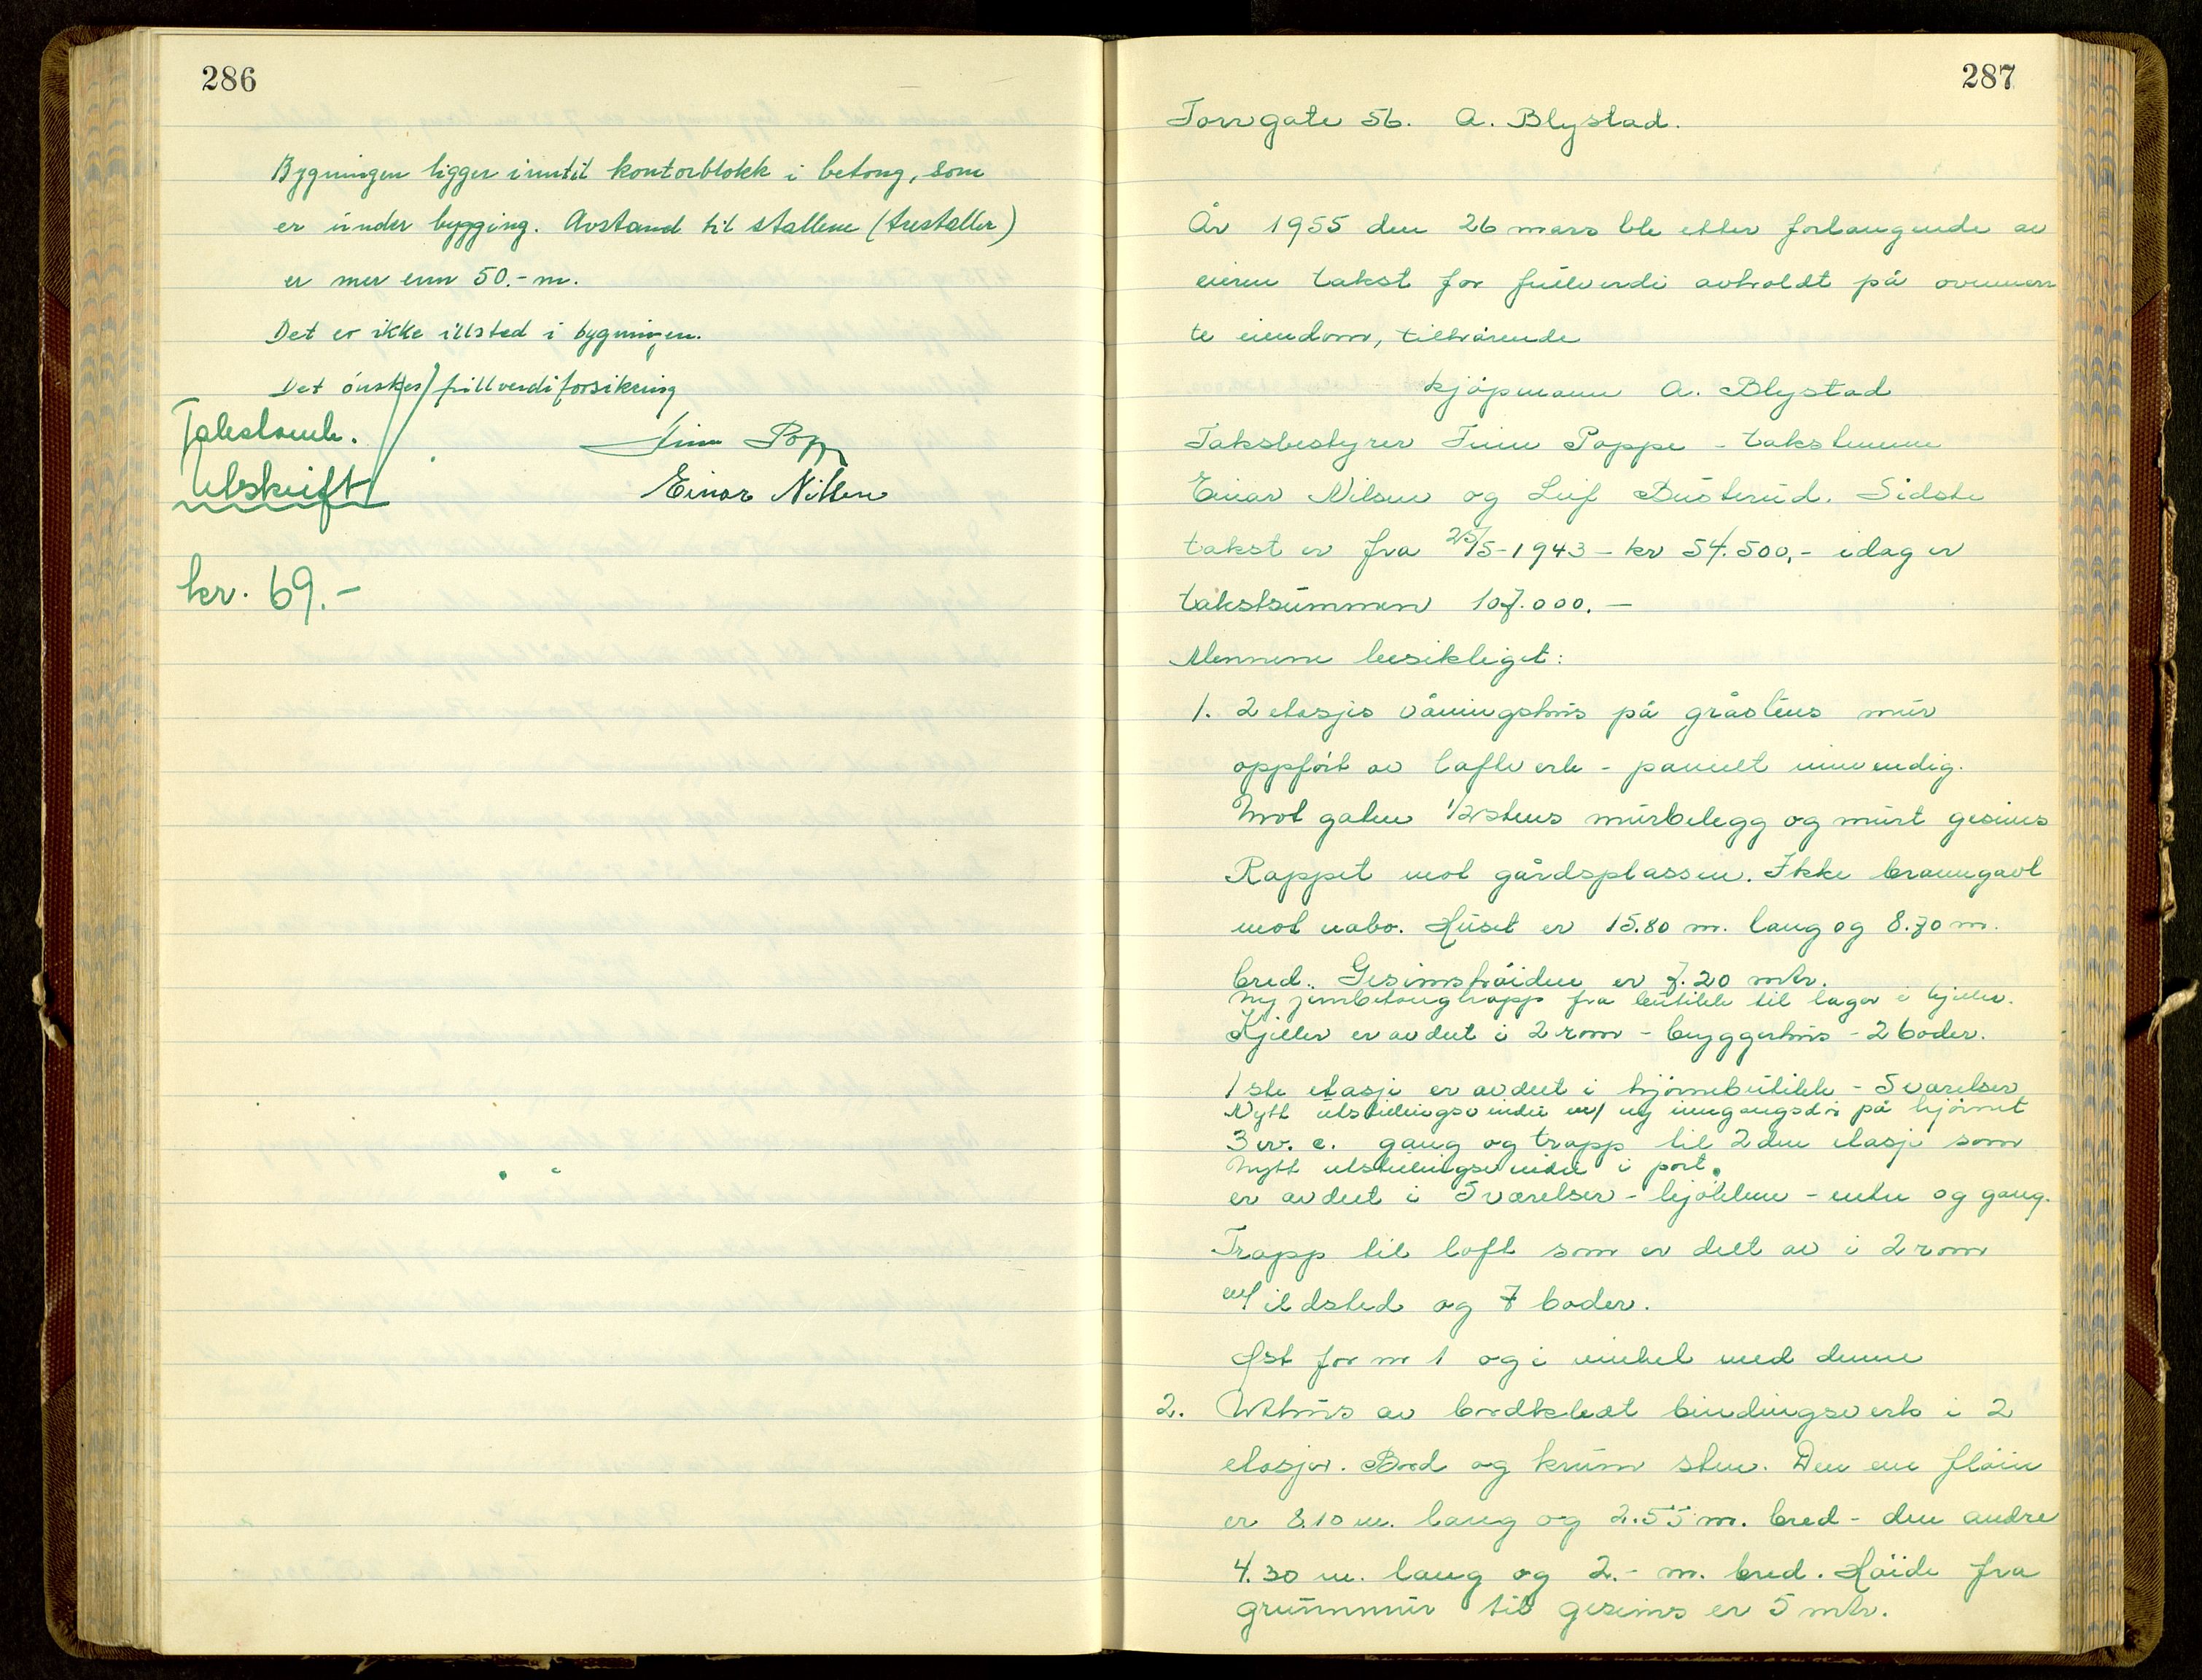 286
Bygningen ligger inntil kontorblokk i betong, som
er under bygging. Avstand til stallene (trestaller)
er mer enn 50.- m.
Det er ikke illsted i bygningen.
Det ønskes fullverdiforsikring
Takstomk.
Utskrift
Finn Popp
Einar Nilsen
kr. 69.-
287
Torvgate 56. A. Blystad.
År 1955 den 26 mars ble etter forlangende av
eieren takst for fullverdi avholdt på ovennevn
te eiendom, tilhørende
kjøpmann A. Blystad
Taksbestyrer Finn Poppe - takstmenn
Einar Nilsen og Leif Busterud. Sidste
takst er fra 25/5-1943 - kr 54.500,- idag er
takstsummen 107.000.-
Mennene besiktiget:
1. 2 etasjes våningshus på gråstens mur
oppført av lafteverk - panelt innvendig.
Mot gaten 1/2 stens murbelegg og murt gesims
Rappet mot gårdsplassen. Ikke branngavl
mot nabo. Huset er 15.80 m. lang og 8.70 m.
bred. Gesimshøiden er 7.20 mtr.
Ny jernbetongtrapp fra butikk til lager i kjeller.
Kjeller er avdelt i 2 rom - bryggerhus - 2 boder.
1ste etasje er avdelt i hjørnebutikk - 5 værelser
Nytt utstillingsvindu m/ ny inngangsdør på hjørnet
3 w. c. gang og trapp til 2den etasje som
Nytt utstillingsvindu i port.
er avdelt i 5 værelser - kjøkken - entre og gang.
Trapp til loft som er delt av i 2 rom
m/ ildsted og 7 boder.
Øst for nr 1 og i vinkel med denne
2. Uthus av bordkledt bindingsverk i 2
etasjer. Bord og krum sten. Den ene fløin
er 8.10 m. lang og 2.55 m. bred - den andre
4.30 m. lang og 2.- m. bred. Høide fra
grunnmur til gesims er 5 mtr.